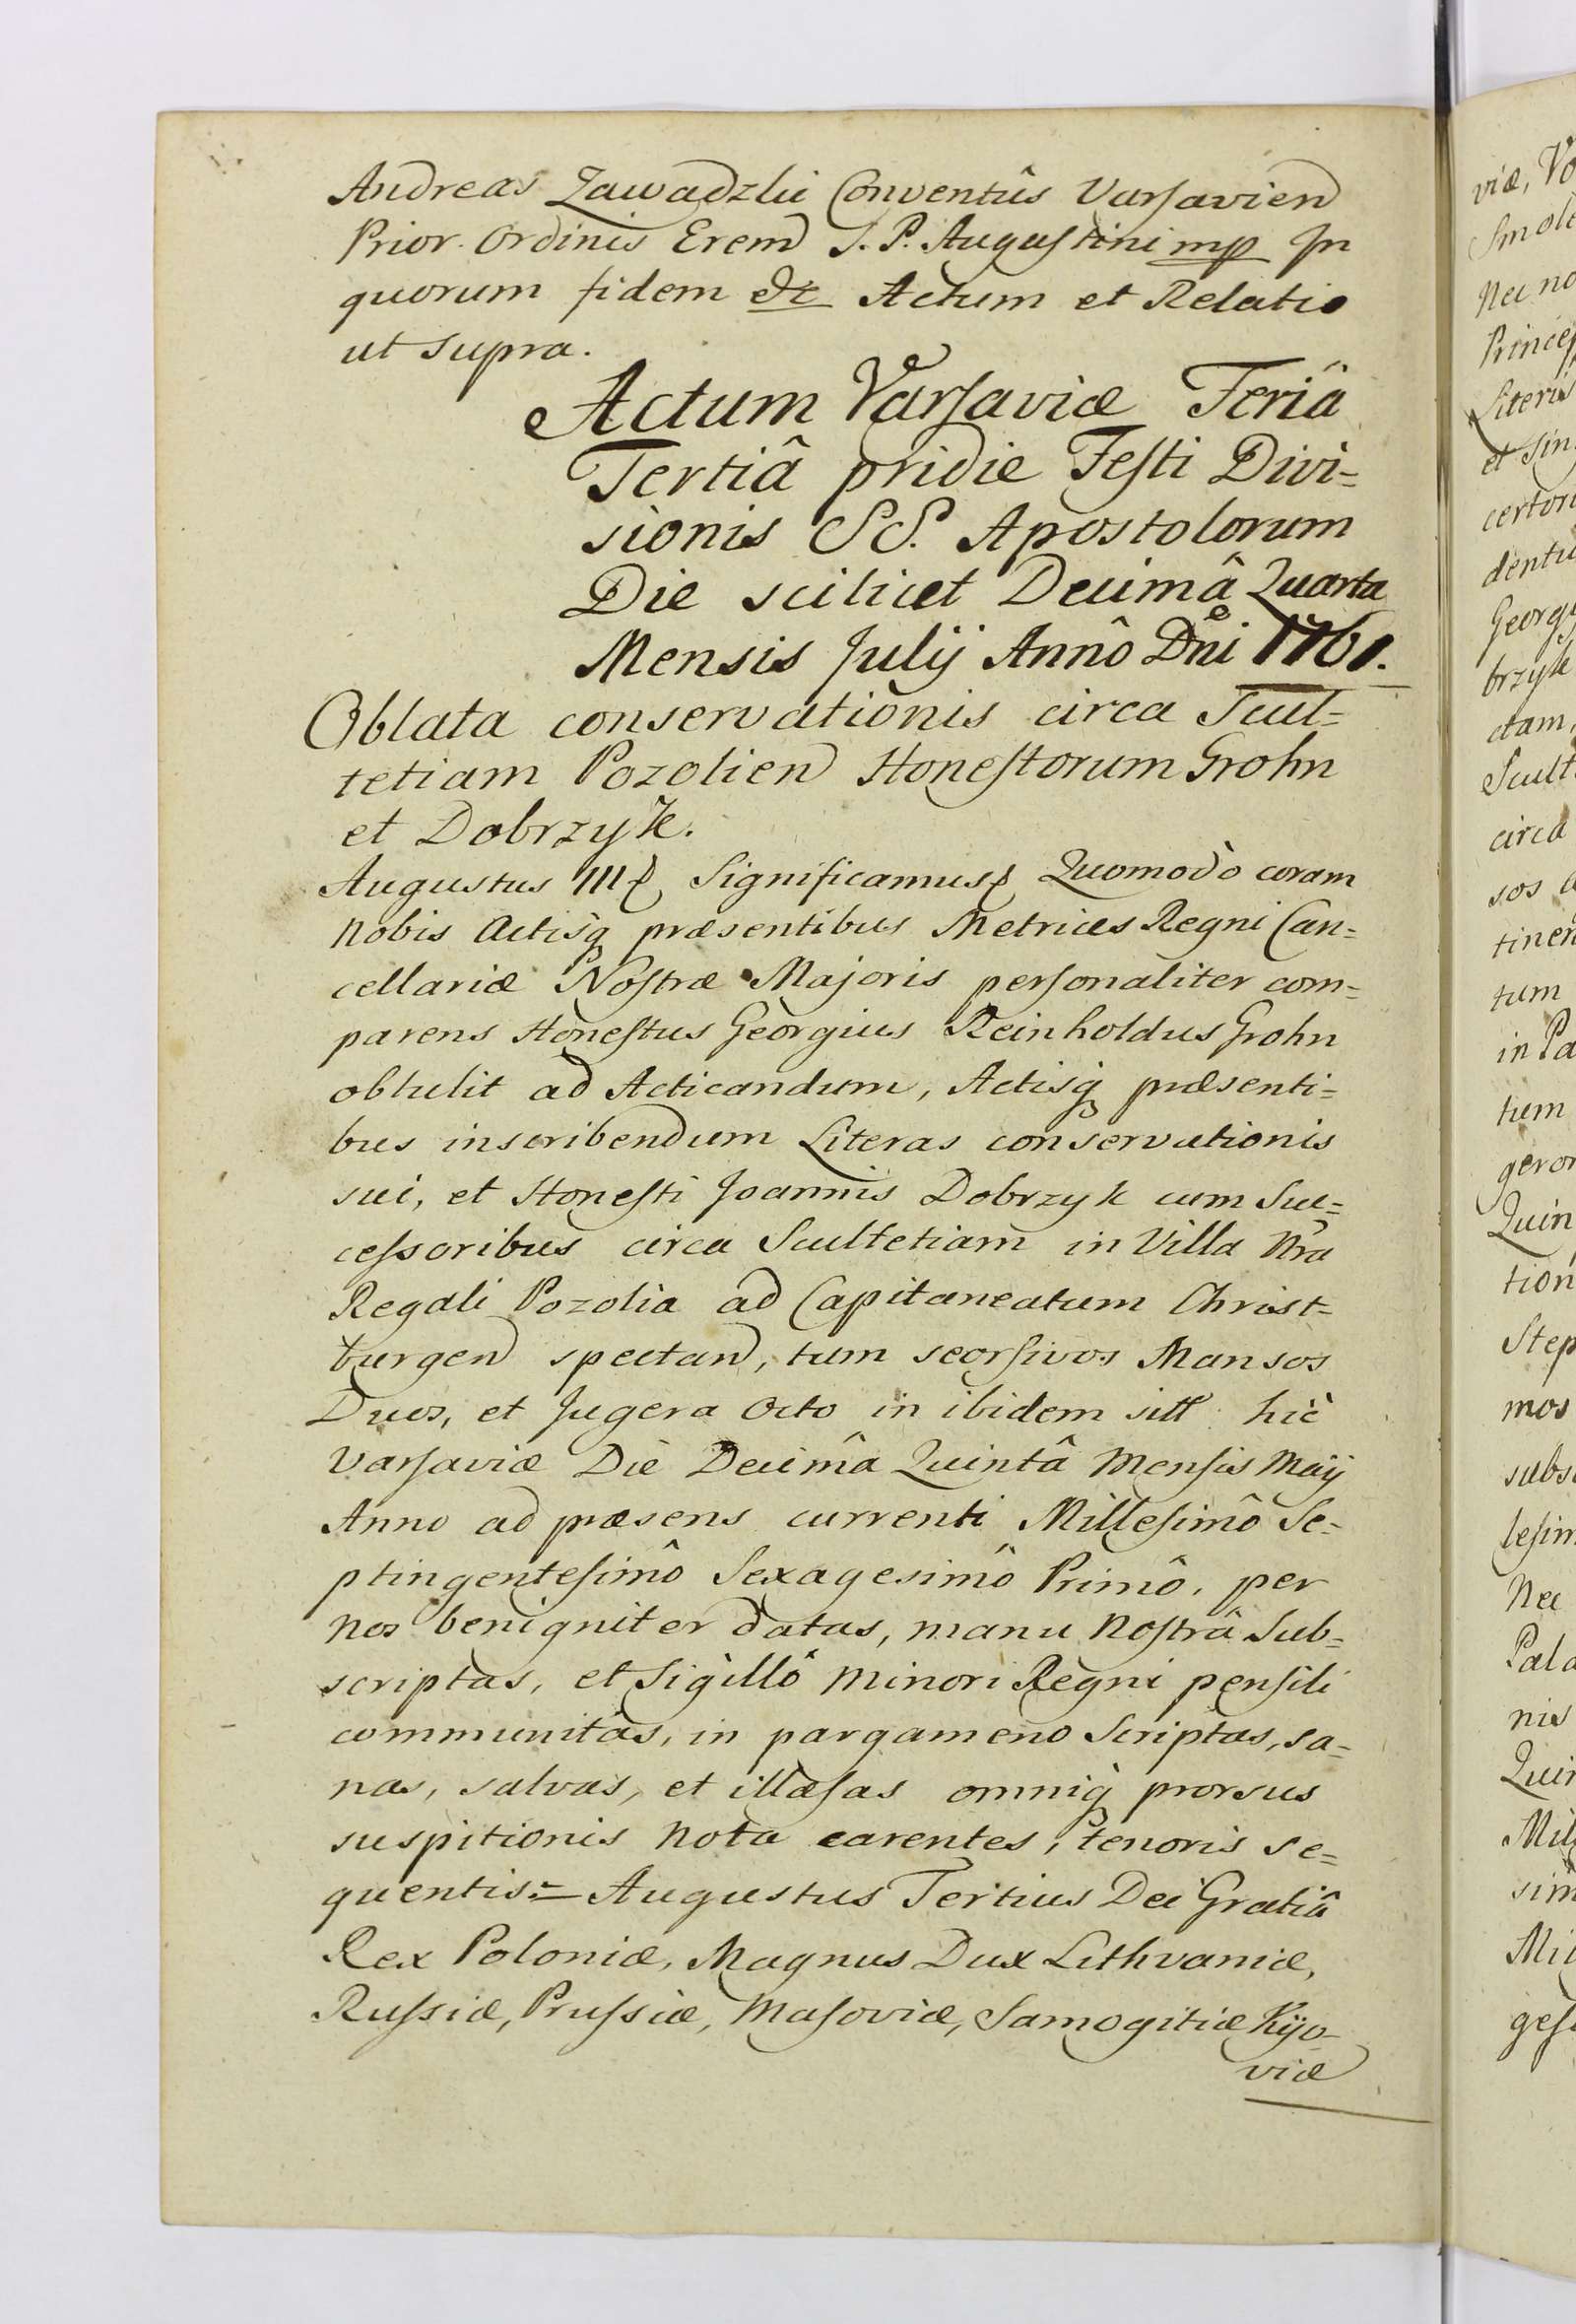 Andreas Zawadzki Conventûs Varsavien
Prior Ordinis Erem S. P. Augustini mp In
quorum fidem &c Actum et Relatio
ut supra.
Actum Varsaviæ Feriâ
Tertiâ pridie Festi Divi=
sionis SS. Apostolorum
Die scilicet Decimâ Quarta
Mensis Julij Annô Dni 1761.
Oblata conservationis circa Scul=
tetiam Pozolien Honestorum Grohn
et Dobrzyk.
Augustus III Significamus Quomodò coram
Nobis Actisq præsentibus Metrices Regni Can=
cellariæ Nostræ Majoris personaliter com=
parens Honestus Georgius Reinholdus Grohn
obtulit ad Acticandum, Actisq præsenti=
bus inscribendum Literas conservationis
sui, et Honesti Joannis Dobrzyk cum Suc=
cessoribus circa Scultetiam in Villa Nra
Regali Pozolia ad Capitaneatum Christ=
burgen spectan, tum seorsivos Mansos
Duos, et Jugera Octo in ibidem sitt hic
Varsaviæ Die Decimâ Quintâ Mensis Maij
Anno ad præsens currenti Millesimô Se=
ptingentesimô Sexagesimô Primô, per
Nos benigniter datas, manu Nostrâ Sub=
scriptas, et Sigillô Minori Regni pensili
communitas, in pargameno Scriptas, sa=
nas, salvas, et illæsas omniq prorsus
suspitionis nota carentes, tenoris se=
quentis= Augustus Tertius Dei Gratiâ
Rex Poloniæ, Magnus Dux Lithvaniæ,
Russiæ, Prussiæ, Masoviæ, Samogitiæ Kijo-
viæ
viæ, Vo
Smole
Nec no
Princep
Literis
et Sin
certor
dentu
Georgi
brzyk
ctam,
Scult
circa
sos
tinen
tum
in Pa
tum
geror
Quin
tion
Step
mos
subs
lesim
Nec
Pala
nis
Quin
Mil
sim
Mi
gesi